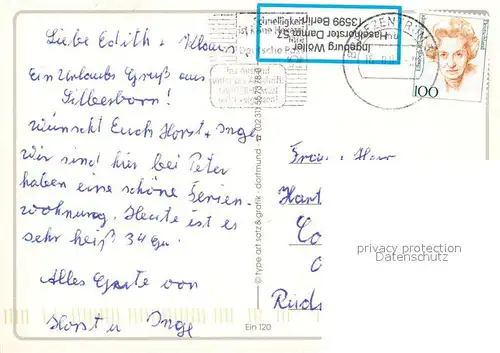 Liebe Edith + Klaus.
Ein Urlaubs Gruß aus
Silberborn!
wünscht Euch Horst + Inge
Wir sind hier bei Peter
haben eine schöne Ferien-
wohnung. Heute ist es
sehr heiß 34 Gr.
Alles Gute von
Horst u Inge
Ingeburg Woller
Haselhorster Damm 57
13599 Berlin
Deutsche Post
BRIEFZENTRUM
Deutschland
100
© type art satz & grafik · dortmund · ☎ (0231)
Ein 120
Frau u. Herr
Hart
Co
Rüds
privacy protection
Datenschutz